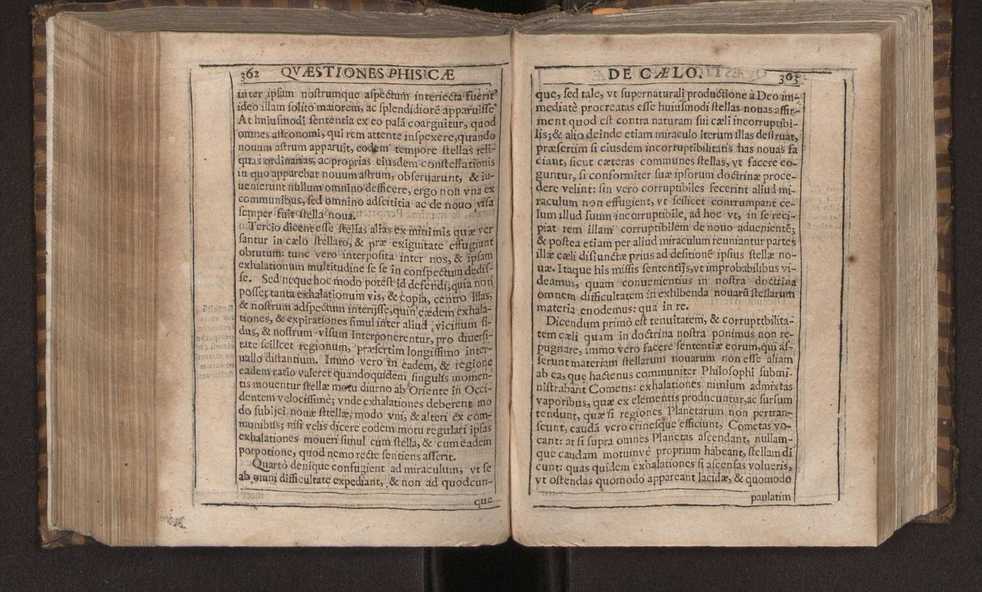 362 QVÆSTIONES PHISICÆ
inter ipsam nostrumque aspectum interiecta fuerit
ideo illam solito maiorem, ac splendidiorẽ apparuisse
At huiusmodi sententia ex eo palã coarguitur, quod
omnes astronomi, qui rem attente inspexere, quando
nouum astrum apparuit, eodem tempore stellas reli-
quas ordinarias, ac proprias eiusdem constellationis
in quo apparebat nouum astrum, obseruarunt, & in-
uenierunt nullum omnino defficere, ergo non vna ex
communibus, sed omnino adscititia ac de nouo visa
semper fuit stella noua.
Tercio dicent esse stellas alias ex minimis quæ ver
santur in cælo stellato, & præ exiguitate effugiunt
obrutum: tunc vero interposita inter nos, & ipsam
exhalationum multitudine se se in conspectum dedis-
se. Sed neque hoc modo potest id defendi, quia non
posset tanta exhalationum vis, & copia, centro illas,
& nostrum adspectum interijsse, quin eædem exhala-
tiones, & expirationes simul inter aliud vicinum si-
dus, & nostrum visum interponerentur, pro diuersi-
tate scilicet regionum, præsertim longissimo inter-
uallo distantium. Immo vero in eadem, & regione
eadem ratio valeret quandoquidem singulis momen-
tis mouentur stellæ motu diurno ab Oriente in Occi-
dentem velocissime; vnde exhalationes deberent mo
do subijci nouæ stellæ, modo vni, & alteri ex com-
munibus; nisi velis dicere eodem motu regulari ipsas
exhalationes moueri simul cum stella, & cum eadem
porpotione, quod nemo recte sentiens asserit.
Quartò denique confugient ad miraculum, vt se
ab omni difficultate expediant, & non ad quodcun-
que
DE CÆLO. 363
que, sed tale, vt supernaturali productione à Deo im-
mediatè procreatas esse huiusmodi stellas nouas affir-
ment quod est contra naturam sui cæli incorruptibi-
lis; & alio deinde etiam miraculo iterum illas destruat,
præsertim si eiusdem incorruptibilitatis has nouas fa
ciant, sicut cæteras communes stellas, vt facere co-
guntur, si conformiter suæ ipsorum doctrinæ proce-
dere velint: sin vero corruptibiles fecerint aliud mi-
raculum non effugient, vt scilicet corrumpant ce-
lum illud suum incorruptibile, ad hoc vt, in se reci-
piat tem illam corruptibilem de nouo aduenientẽ;
& postea etiam per aliud miraculum reuniantur partes
illæ cæli disiunctæ prius ad desitionẽ ipsius stellæ no-
uæ. Itaque his missis sententijs, vt improbabilibus vi-
deamus, quam conuenientius in nostra doctrina
omnem difficultatem in exhibenda nouarũ stellarum
materia enodemus: qua in re.
Dicendum primò est tenuitatem, & corruptibilita-
tem cæli quam in doctrina nostra ponimus non re-
pugnare, immo vero facere sententiæ eorum, qui as-
serunt materiam stellarum nouarum non esse aliam
ab ea, que hactenus communiter Philosophi submi-
nistrabant Cometis: exhalationes nimium admixtas
vaporibus, quæ ex elementis producuntur, ac sursum
tendunt, quæ si regiones Planetarum non pertran-
seunt, caudã vero crinesque efficiunt, Cometas vo-
cant: at si supra omnes Planetas ascendant, nullam-
que caudam motumvè proprium habeant, stellam di
cunt: quas quidem exhalationes si ascensas volueris,
vt ostendas quomodo appareant lucidæ, & quomodo
paulatim